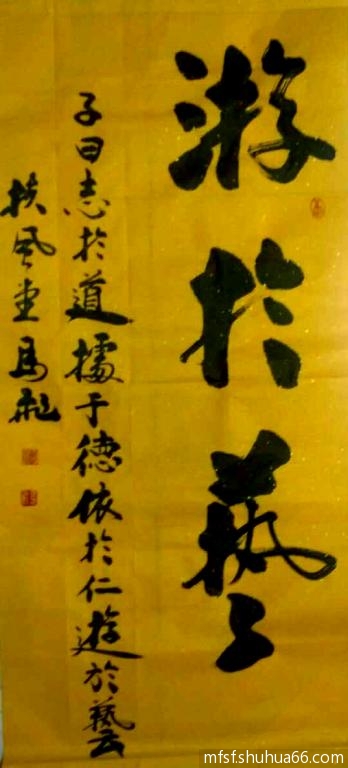 游於藝
子曰志於道據于德依於仁遊於藝
扶風堂馬彪
mfsf.shuhua66.com